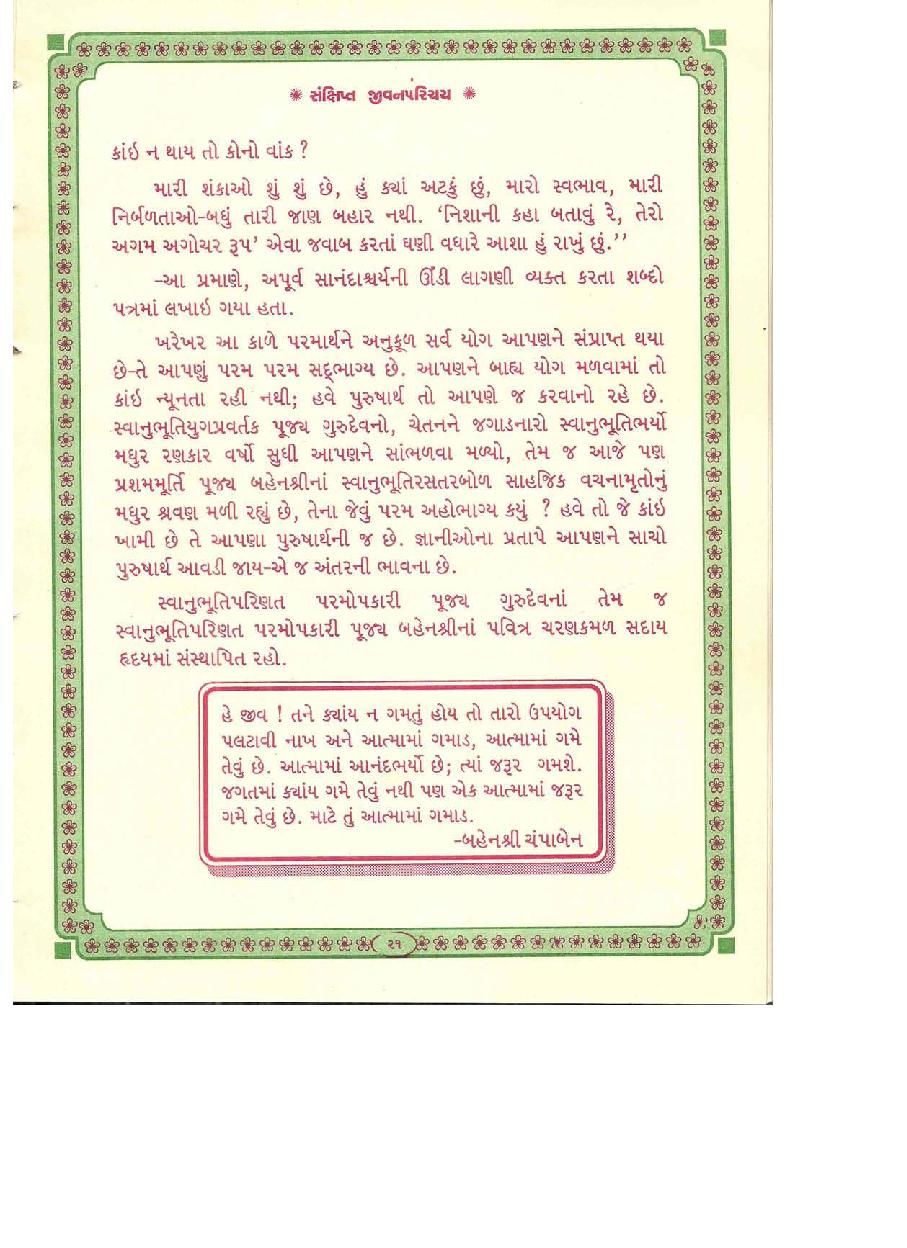 ❋ સંક્ષિપ્ત જીવનપરિચય ❋
કાંઇ ન થાય તો કોનો વાંક ?
મારી શંકાઓ શું શું છે, હું ક્યાં અટકું છું, મારો સ્વભાવ, મારી
નિર્બળતાઓ-બધું તારી જાણ બહાર નથી. ‘નિશાની કહા બતાવું રે, તેરો
અગમ અગોચર રૂપ’ એવા જવાબ કરતાં ઘણી વધારે આશા હું રાખું છું.’’
-આ પ્રમાણે, અપૂર્વ સાનંદાશ્ચર્યની ઊંડી લાગણી વ્યક્ત કરતા શબ્દો
પત્રમાં લખાઇ ગયા હતા.
ખરેખર આ કાળે પરમાર્થને અનુકૂળ સર્વ યોગ આપણને સંપ્રાપ્ત થયા
છે-તે આપણું પરમ પરમ સદ્ભાગ્ય છે. આપણને બાહ્ય યોગ મળવામાં તો
કાંઇ ન્યૂનતા રહી નથી; હવે પુરુષાર્થ તો આપણે જ કરવાનો રહે છે.
સ્વાનુભૂતિયુગપ્રવર્તક પૂજ્ય ગુરુદેવનો, ચેતનને જગાડનારો સ્વાનુભૂતિભર્યો
મધુર રણકાર વર્ષો સુધી આપણને સાંભળવા મળ્યો, તેમ જ આજે પણ
પ્રશમમૂર્તિ પૂજ્ય બહેનશ્રીનાં સ્વાનુભૂતિરસતરબોળ સાહજિક વચનામૃતોનું
મધુર શ્રવણ મળી રહ્યું છે, તેના જેવું પરમ અહોભાગ્ય કયું ? હવે તો જે કાંઇ
ખામી છે તે આપણા પુરુષાર્થની જ છે. જ્ઞાનીઓના પ્રતાપે આપણને સાચો
પુરુષાર્થ આવડી જાય-એ જ અંતરની ભાવના છે.
સ્વાનુભૂતિપરિણત પરમોપકારી પૂજ્ય ગુરુદેવનાં તેમ જ
સ્વાનુભૂતિપરિણત પરમોપકારી પૂજ્ય બહેનશ્રીનાં પવિત્ર ચરણકમળ સદાય
હૃદયમાં સંસ્થાપિત રહો.
હે જીવ ! તને ક્યાંય ન ગમતું હોય તો તારો ઉપયોગ
પલટાવી નાખ અને આત્મામાં ગમાડ, આત્મામાં ગમે
તેવું છે. આત્મામાં આનંદભર્યો છે; ત્યાં જરૂર ગમશે.
જગતમાં ક્યાંય ગમે તેવું નથી પણ એક આત્મામાં જરૂર
ગમે તેવું છે. માટે તું આત્મામાં ગમાડ.
-બહેનશ્રી ચંપાબેન
૨૧